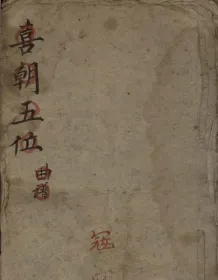 喜朝五位
曲譜
冠